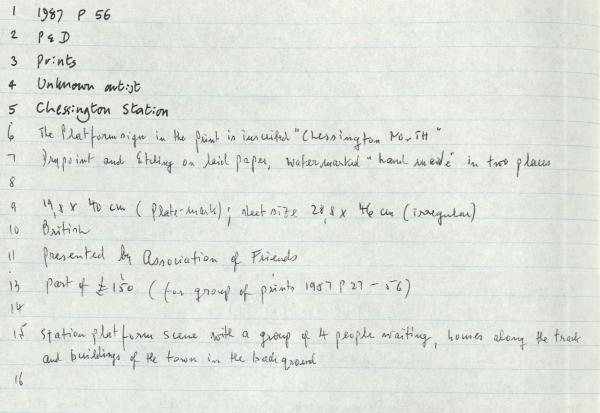 1 1987 P 56
2 P & D
3 Prints
4 Unknown artist
5 Chessington Station
6 The Platform sign in the print is inscribed "Chessington North"
7 Drypoint and Etching on laid paper, watermarked "hand made" in two places
8
9 19,8 x 40 cm (plate-mark); sheet size 28,8 x 46 cm (irregular)
10 British
11 presented by Association of Friends
13 part of £150 (for group of prints 1987 P 27 - 56)
14
15 Station platform scene with a group of 4 people waiting, houses along the track
and buildings of the town in the background
16